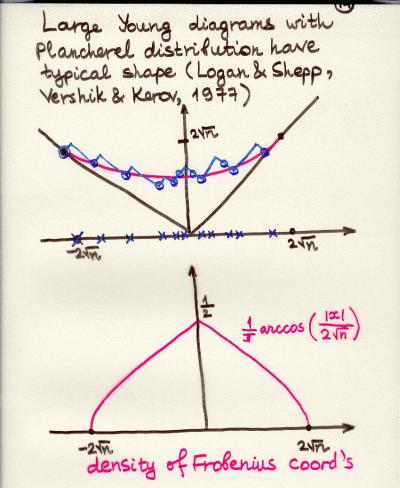 Large Young diagrams with
Plancherel distribution have
typical shape (Logan & Shepp,
Vershik & Kerov, 1977)
2√n
-2√n
2√n
1/2
1/π arccos(|x|/2√n)
-2√n
2√n
density of Frobenius coord's